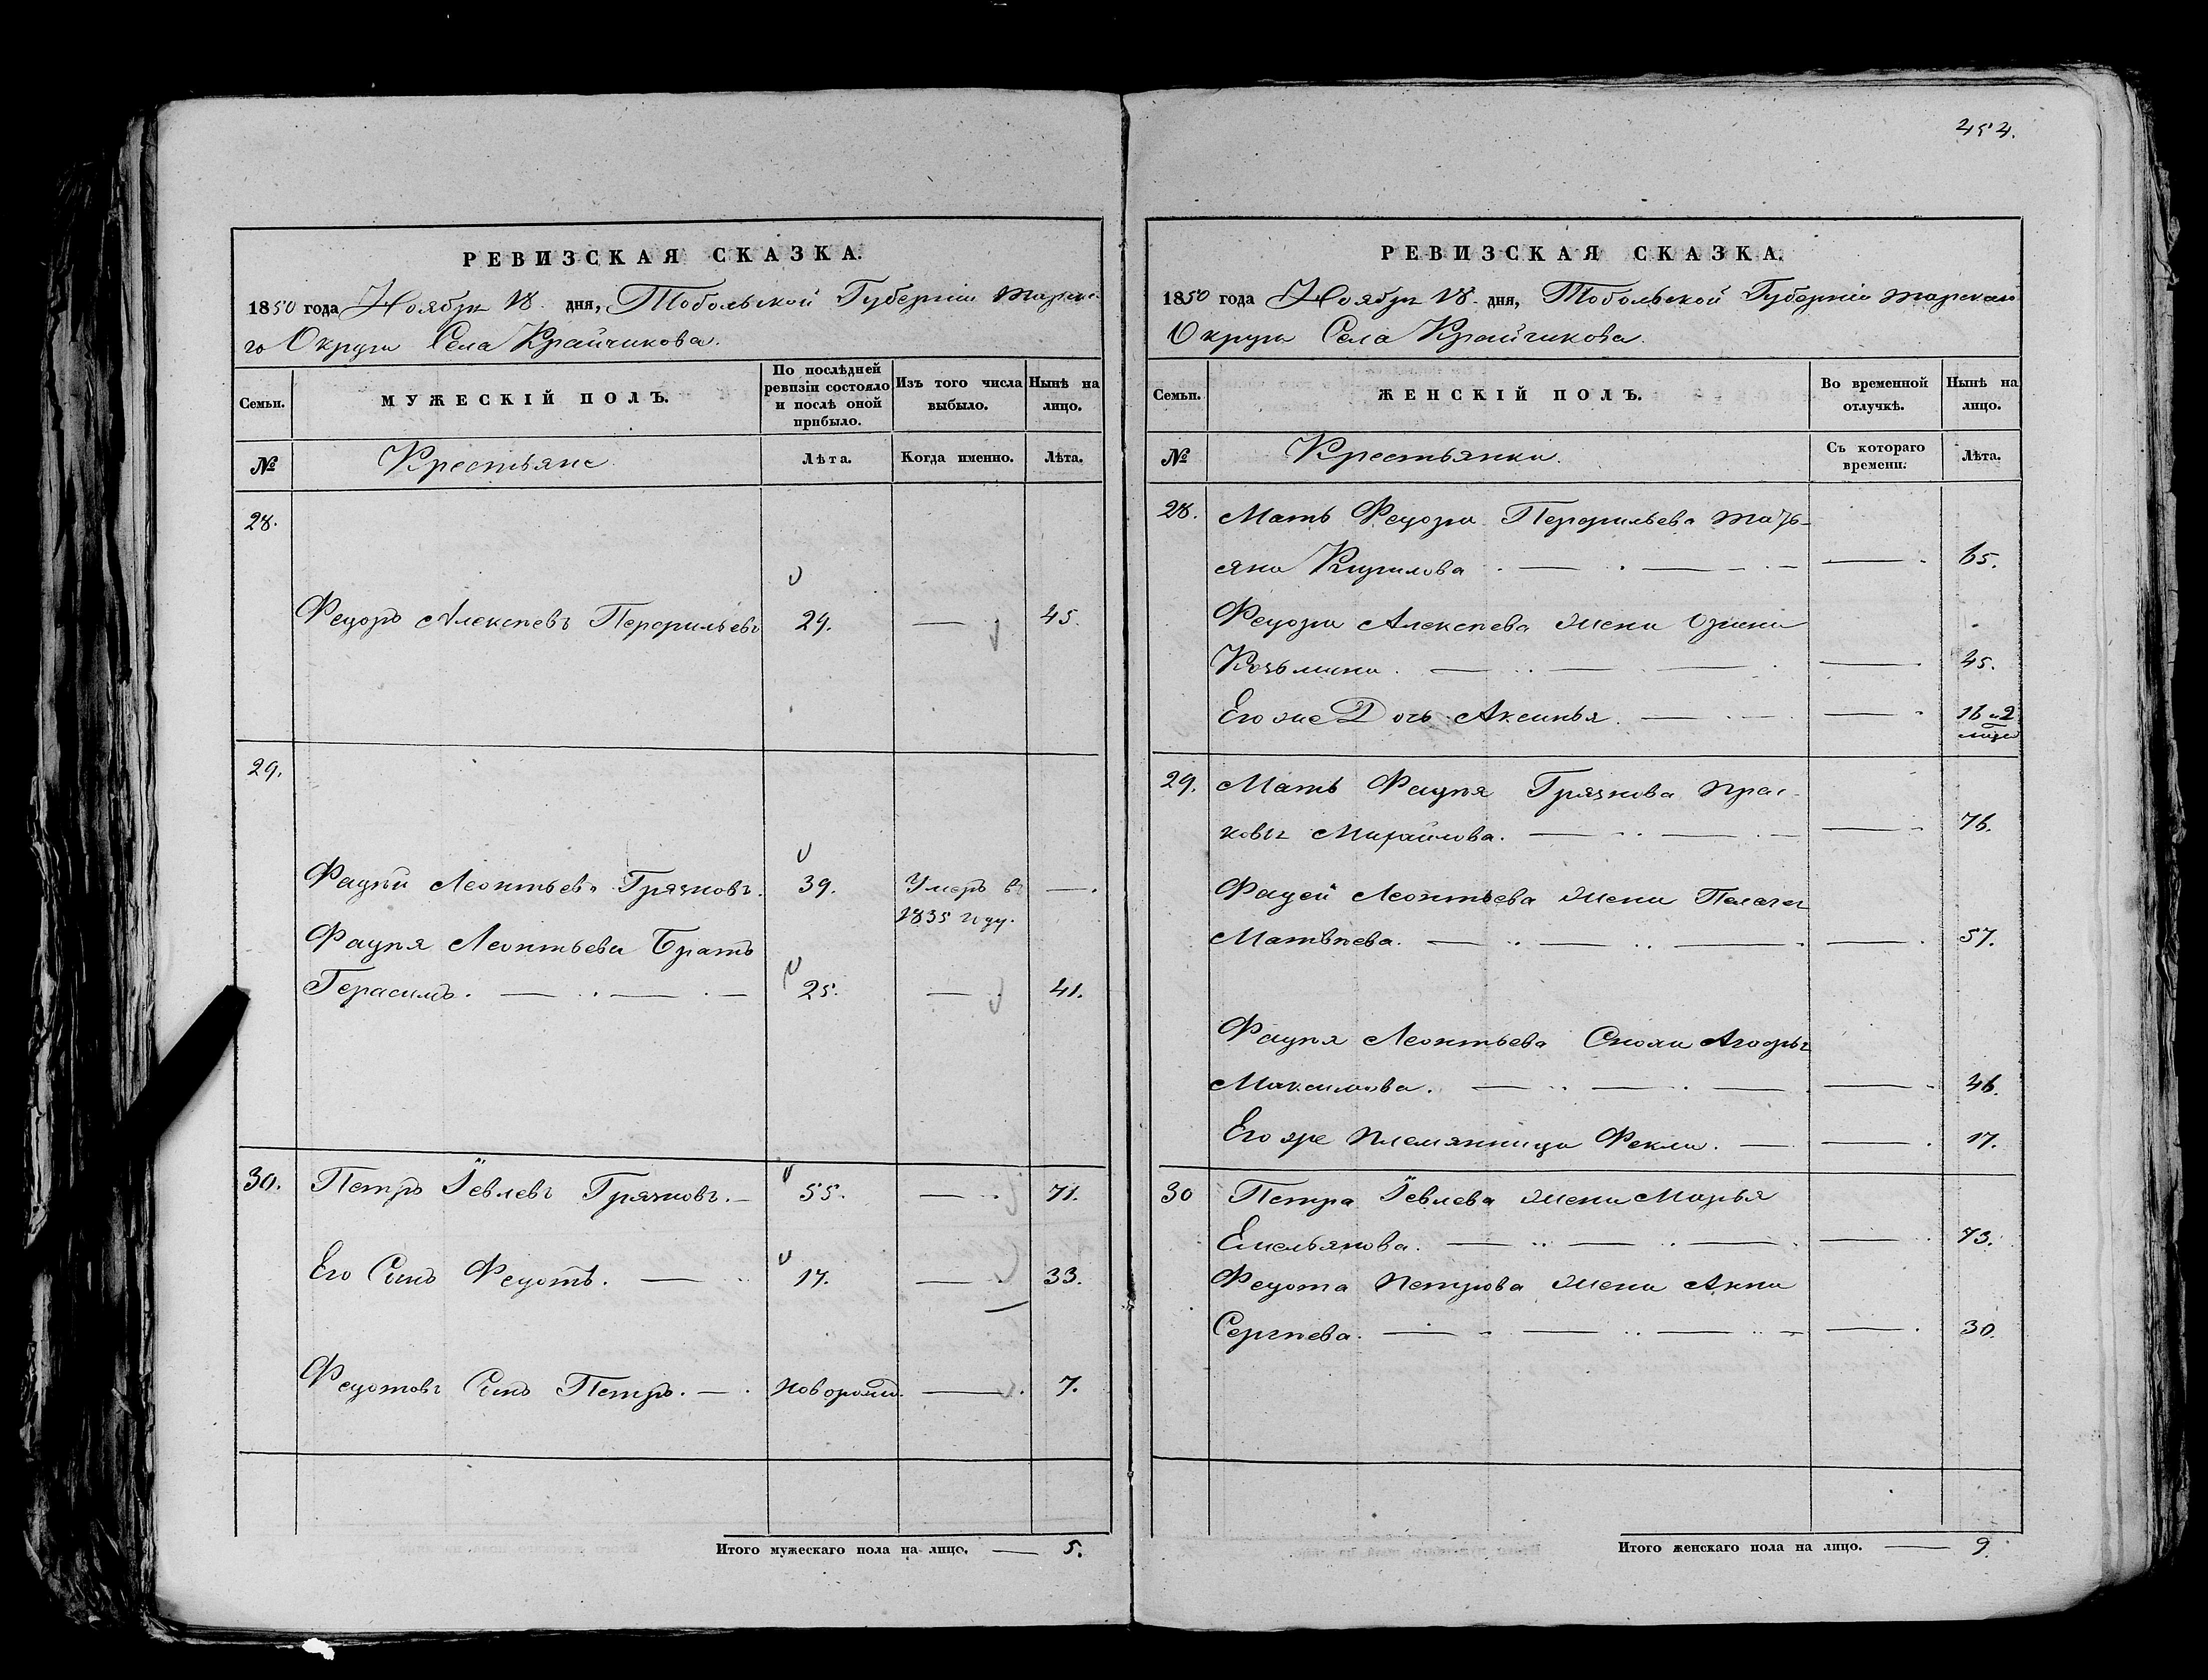 454.
РЕВИЗСКАЯ СКАЗКА.
1850 года Ноября 18 дня, Тобольской Губерніи Тарска-
го Округа Села Крайчикова.
Семьи.
МУЖЕСКІЙ ПОЛЪ.
По послѣдней
ревизіи состояло
и послѣ оной
прибыло.
Изъ того числа
выбыло.
Нынѣ на
лицо.
№
Крестьяне
Лѣта.
Когда именно.
Лѣта.
28.
Федоръ Алексѣевъ Перфильевъ 29. — 45.
29.
Фадѣй Леонтьевъ Грязновъ. 39. Умеръ въ —.
1835 году.
Фадѣя Леонтьева Братъ
Герасимъ. — 25. — 41.
30. Петръ Іевлевъ Грязновъ. — 55. — 71.
Его Сынъ Федотъ. — 17. — 33.
Федотовъ Сынъ Петръ. — новорожд. — 7.
Итого мужескаго пола на лицо. — 5.
РЕВИЗСКАЯ СКАЗКА.
1850 года Ноября 18 дня, Тобольской Губерніи Тарскаго
Округа Села Крайчикова.
Семьи.
ЖЕНСКІЙ ПОЛЪ.
Во временной
отлучкѣ.
Нынѣ на
лицо.
№
Крестьянки.
Съ котораго
времени.
Лѣта.
28. Мать Федора Перфильева Тать-
яна Кирилова — — 65.
Федора Алексѣева жена Орина
Козьмина. — — 45.
Его же Дочь Аксинья. — — 16 и 2
29. Мать Фадѣя Грязнова Прас-
ковья Михайлова. — — 76.
Фадей Леонтьева жена Пелагея
Матвѣева. — — 57.
Фадѣя Леонтьева Сноха Агофья
Максимова. — — 46.
Его же племянница Фекла. — — 17.
30 Петра Іевлева жена Марья
Емельянова. — — 73.
Федота Петрова жена Анна
Сергѣева. — — 30.
Итого женскаго пола на лицо. — 9.